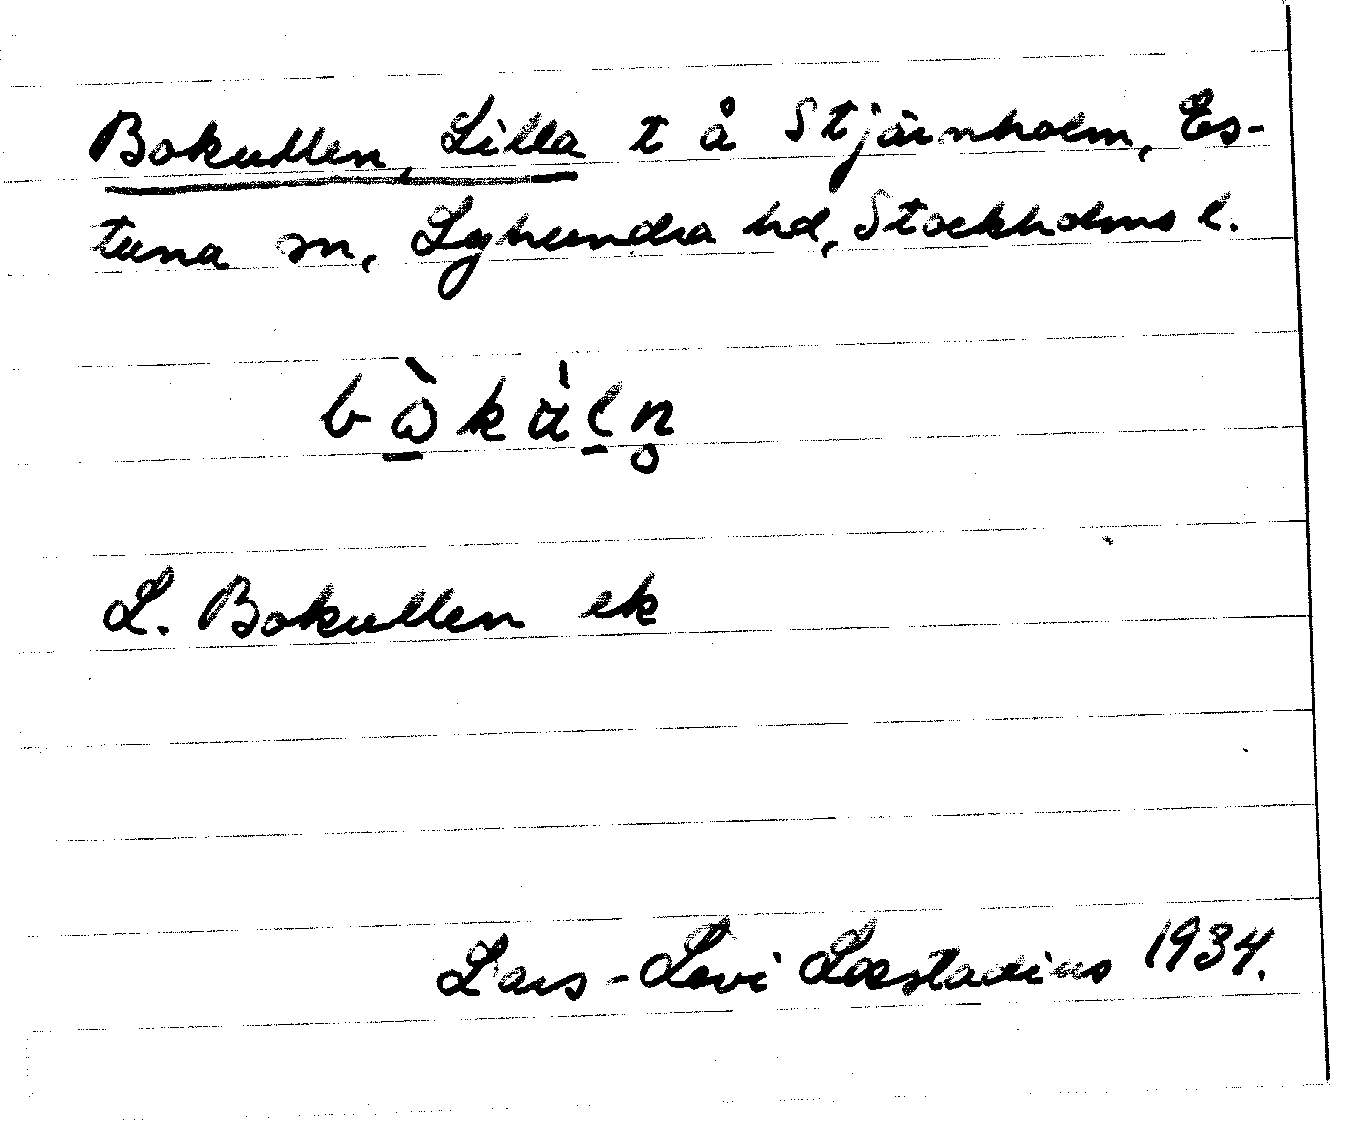 Bokullen, Lilla t å Stjärnholm, Es-
tuna sn, Lyhundra hd, Stockholms l.
L. Bokullen ek
Lars-Levi Læstadius 1934.